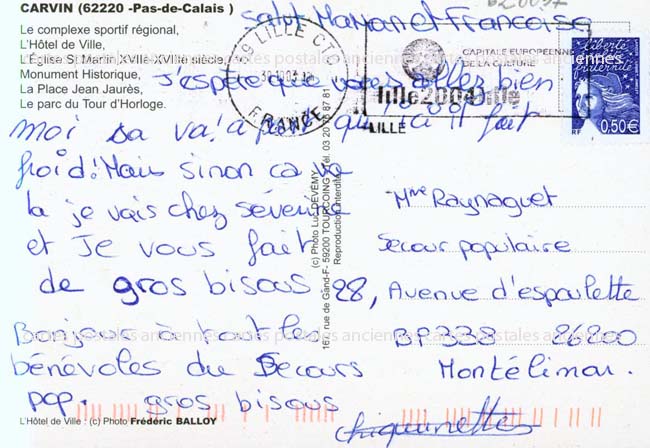 CARVIN (62220 -Pas-de-Calais )
Le complexe sportif régional,
L'Hôtel de Ville,
L'Église St. Martin XVIIè-XVIIIè siècle,
Monument Historique,
La Place Jean Jaurès,
Le parc du Tour d'Horloge.
Salut Maman et Francoise
J'espère que vous allez bien
moi sa va! a part qu'ici il fait
froid! Mais sinon ca va
la je vais chez Séverine
et Je vous fait
de gros bisous
Bonjour à tout les
bénévoles du Secours
pop. gros bisous
chiquinettes
59 LILLE CT
FRANCE
CAPITALE EUROPEENNE
DE LA CULTURE
lille2004
LILLE
liberté
fraternité
RF 0,50€
Mme Raynaguet
Secour populaire
28, Avenue d'espoulette
BP338 26200
Montélimar.
(c) Photo Luc DEVÉMY
167, rue de Gand-F- 59200 TOURCOING Tél. 03 20 76 87 81
Reproduction interdite
cartes postales anciennes cartes postales anciennes cartes postales anciennes
L'Hôtel de Ville : (c) Photo Frédéric BALLOY